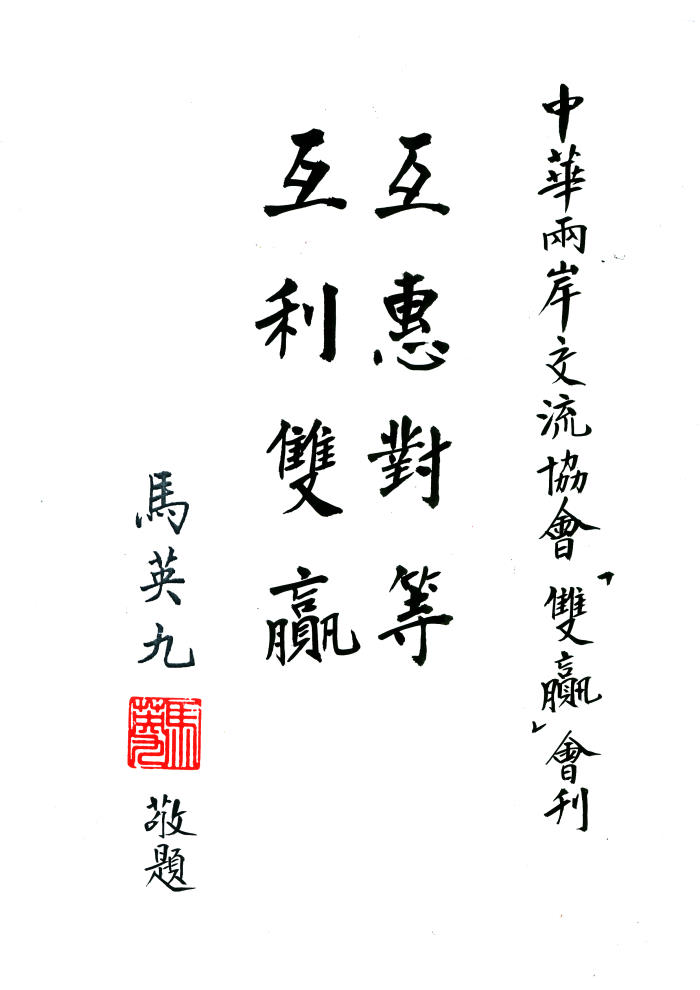 中華兩岸交流協會「雙贏」會刊
互惠對等
互利雙贏
馬英九
馬英九
敬題